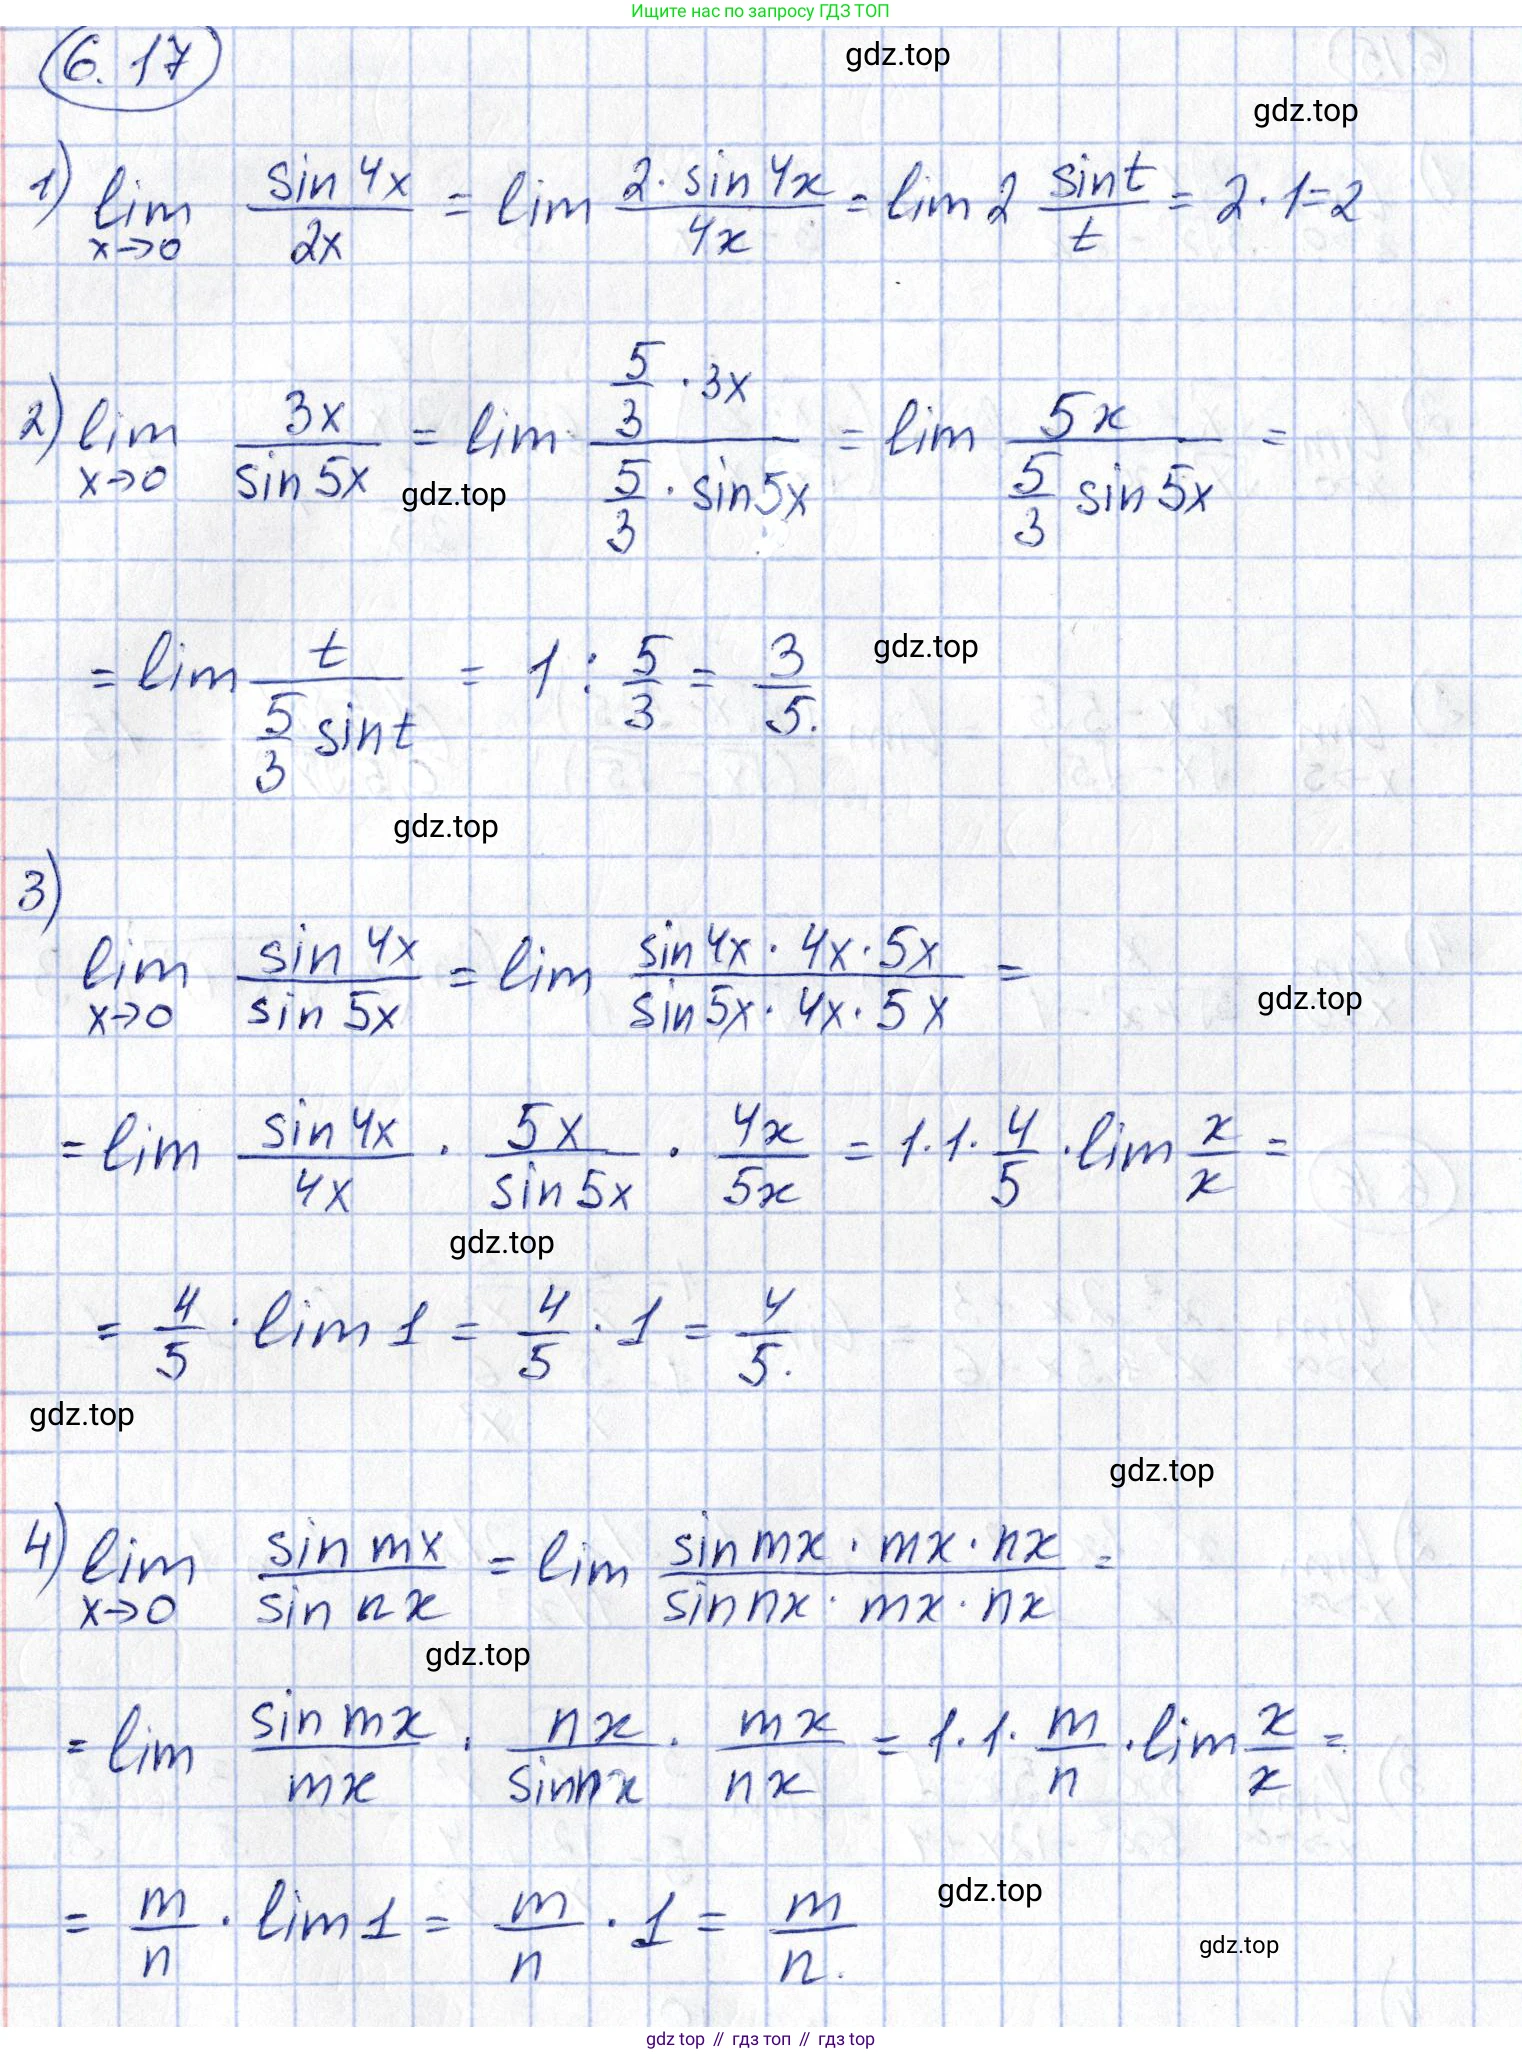 Ищите нас по запросу ГДЗ ТОП
6.17
gdz.top
gdz.top
1) lim x→0 sin4x/2x = lim 2·sin4x/4x = lim 2 sint/t = 2·1=2
2) lim x→0 3x/sin5x = lim (5/3·3x)/(5/3·sin5x) = lim 5x/(5/3 sin5x) =
gdz.top
= lim t/(5/3 sint) = 1 : 5/3 = 3/5.
gdz.top
gdz.top
3)
lim x→0 sin4x/sin5x = lim (sin4x·4x·5x)/(sin5x·4x·5x) =
gdz.top
= lim sin4x/4x · 5x/sin5x · 4x/5x = 1·1·4/5·lim x/x =
gdz.top
= 4/5·lim1 = 4/5·1 = 4/5.
gdz.top
gdz.top
4) lim x→0 sin mx/sin nx = lim (sin mx·mx·nx)/(sin nx·mx·nx) =
gdz.top
= lim sin mx/mx · nx/sin nx · mx/nx = 1·1·m/n·lim x/x =
= m/n·lim1 = m/n·1 = m/n.
gdz.top
gdz.top
gdz top // гдз топ // гдз top